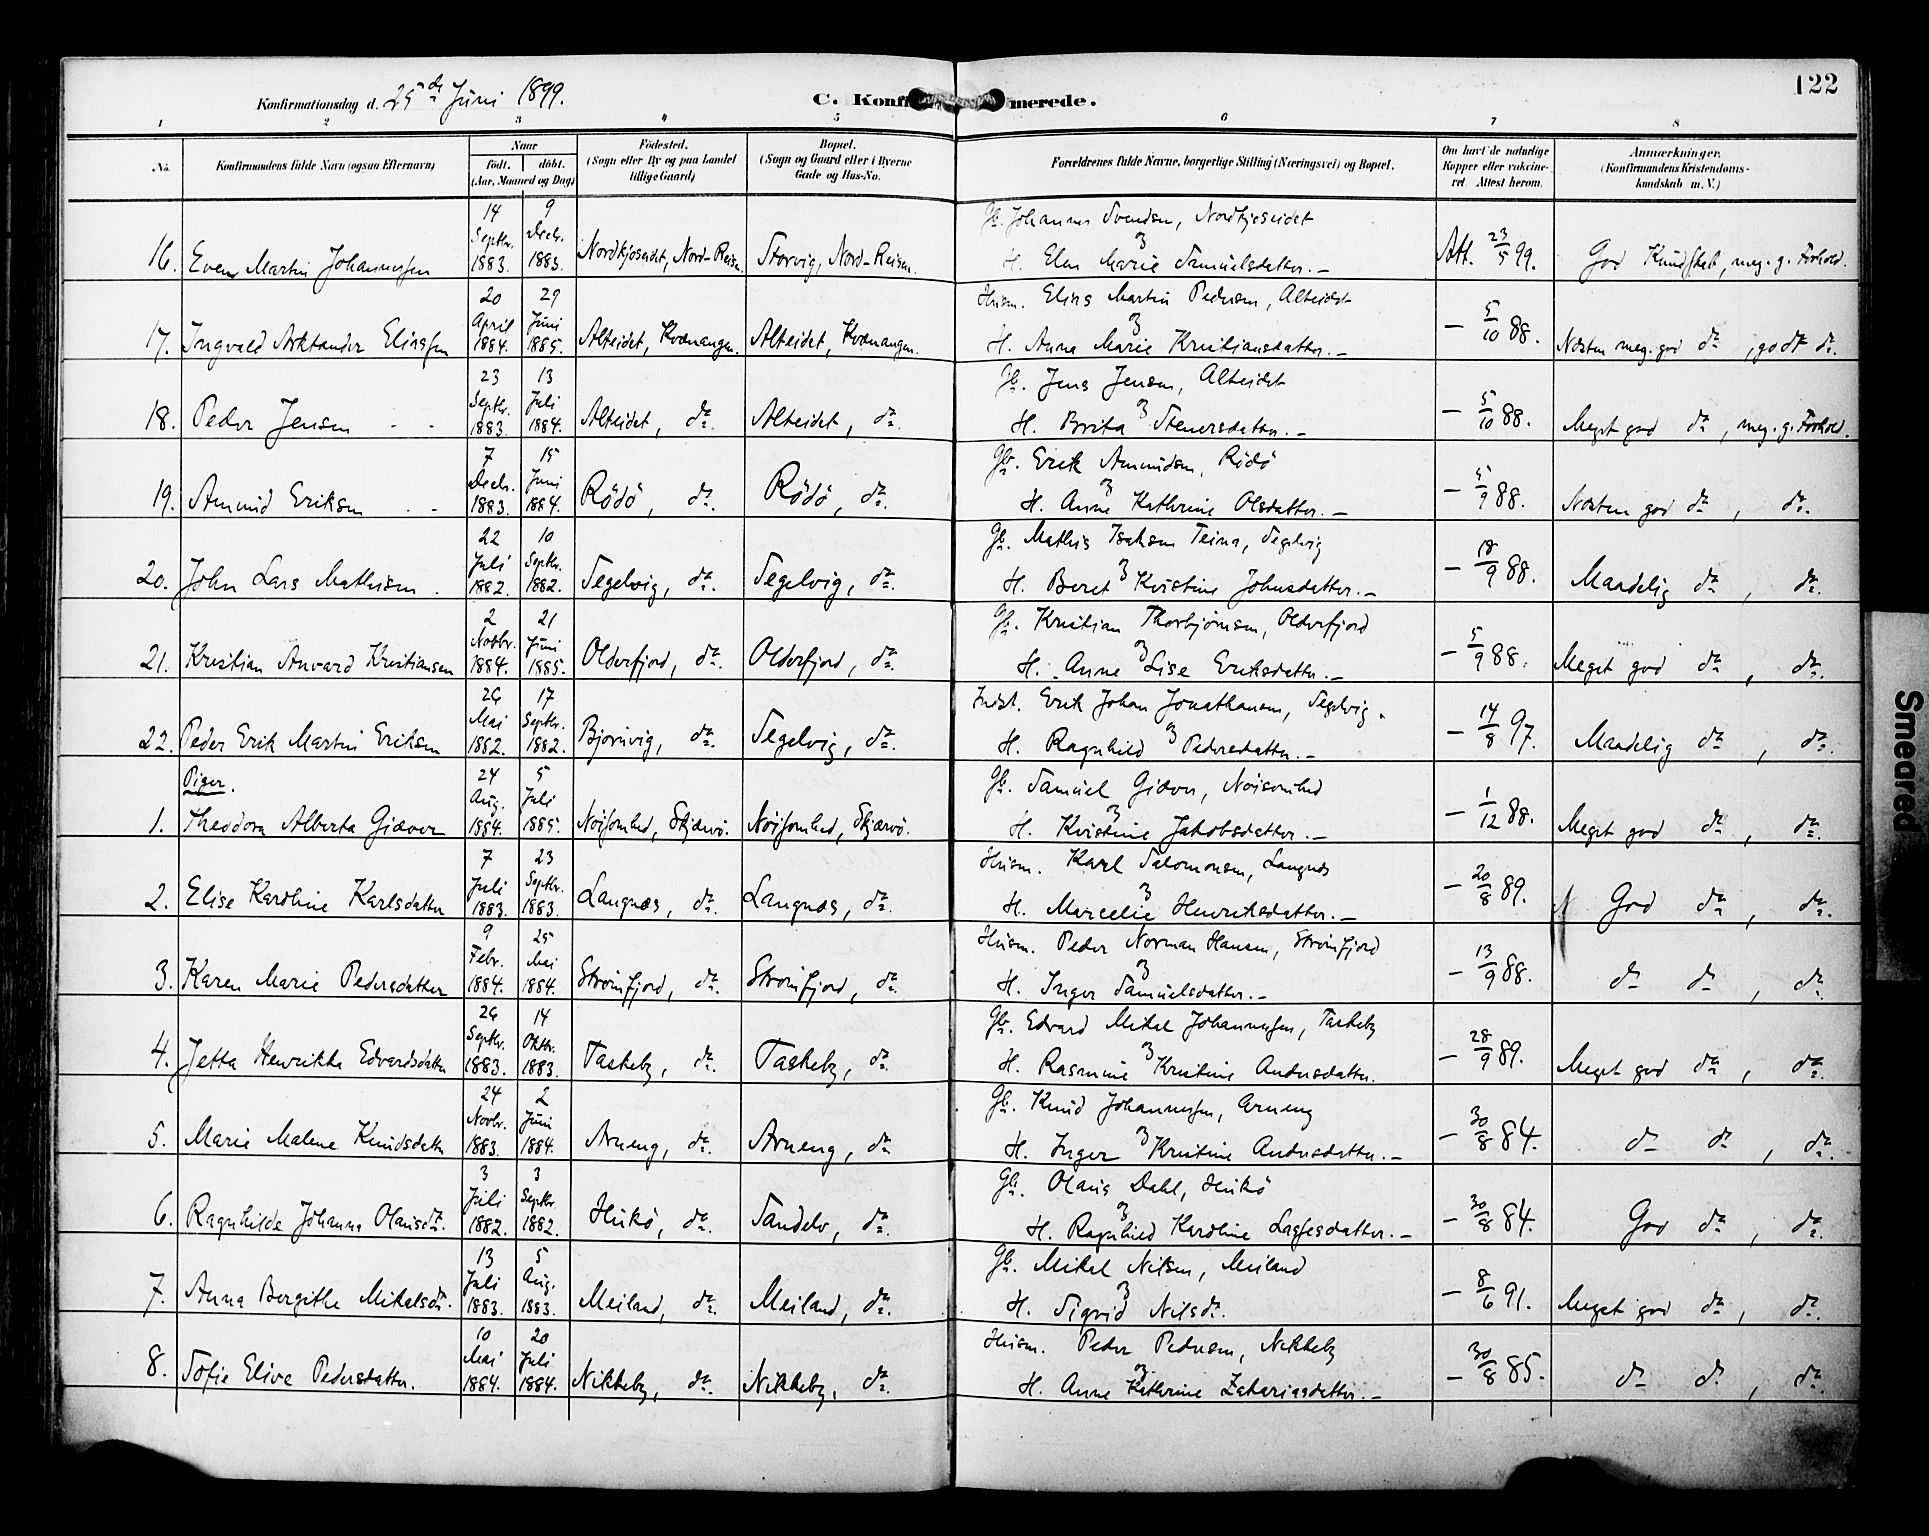 Konfirmationsdag d. 25de Juni 1899.
C. Konfi merede.
122
1 2 3 4 5 6 7 8
No.
Konfirmandens fulde Navn (ogsaa Efternavn)
Naar
født. døbt.
(Aar, Maaned og Dag)
Fødested.
(Sogn eller By og paa Landet
tillige Gaard)
Bopæl.
(Sogn og Gaard eller i Byerne
Gade og Hus-No.
Forældrenes fulde Navne, borgerlige Stilling (Næringsvei) og Bopæl.
Om havt de naturlige
Kopper eller vakcine-
ret. Attest herom.
Anmærkninger.
(Konfirmandens Kristendoms-
kundskab m. V.)
16. Even Martin Johannessen 14 Septbr. 1883. 9 Decbr. 1883. Nordkjoseidet, Nord-Reisen. Storvig, Nord-Reisen.
Gb. Johannes Svendsen, Nordkjoseidet
H. Elen Marie Samuelsdatter.—
Att. 23/5 99. God Kundskab, meg. g. Forhold.
17. Ingvald Arktander Eliassen 20 April 1884. 29 Juni 1885. Alteidet, Kvænangen. Alteidet, Kvænangen.
Husm. Elias Martin Pedersen, Alteidet
H. Anna Marie Kristiansdatter.—
— 5/10 88. Næsten meg. god do, godt do.
18. Peder Jensen - - 23 Septbr. 1883. 13 Juli 1884. Alteidet, do. Alteidet, do.
Gb. Jens Jensen, Alteidet
H. Brita Steuersdatter.—
— 5/10 88. Meget god do, meg. g. Forhold.
19. Amund Eriksen - - 7 Decbr. 1883. 15 Juni 1884. Rödö, do. Rödö, do.
Gb. Erik Amundsen, Rödö
H. Anne Kathrine Olsdatter.—
— 5/9 88. Næsten god do, do.
20. John Lars Mathisen. 22 Juli 1882. 10 Septbr. 1882. Segelvig, do. Segelvig, do.
Gb. Mathis Isaksen Teina, Segelvig
H. Beret Kristine Johnsdatter.—
— 18/9 88. Maadelig do, do.
21. Kristian Anvard Kristiansen 2 Novbr. 1884. 21 Juni 1885. Olderfjord, do. Olderfjord, do.
Gb. Kristian Thorbjørnsen, Olderfjord
H. Anne Lise Eriksdatter.—
— 5/9 88. Meget god do, do.
22. Peder Erik Martin Eriksen 26 Mai 1882. 17 Septbr. 1882. Bjørnvig, do. Segelvig, do.
Indst. Erik Johan Jonathansen, Segelvig.
H. Ragnhild Pedersdatter.—
— 14/8 97. Maadelig do, do.
Piger.
1. Theodora Alberta Giæver 24 Aug. 1884. 5 Juli 1885. Nøisomhed, Skjærvö. Nøisomhed, Skjærvö.
Gb. Samuel Giæver, Nøisomhed
H. Kristine Jakobsdatter.—
— 1/12 88. Meget god do, do.
2. Elise Karoline Karlsdatter 7 Juli 1883. 23 Septbr. 1883. Langnæs, do. Langnæs, do.
Husm. Karl Salomonsen, Langnæs
H. Marcelie Henriksdatter.—
— 20/8 89. God do, do.
3. Karen Marie Pedersdatter 9 Febr. 1884. 25 Mai 1884. Strømfjord, do. Strømfjord, do.
Husm. Peder Norman Hansen, Strømfjord
H. Inger Samuelsdatter.—
— 13/9 88. do do, do.
4. Jetta Henrikka Edvardsdatter 26 Septbr. 1883. 14 Oktbr. 1883. Taskeby, do. Taskeby, do
Gb. Edvard Mikal Johannessen, Taskeby
H. Rasmine Kristine Andersdatter.
— 28/9 89. Meget god do, do.
5. Marie Malene Knudsdatter 24 Novbr. 1883. 2 Juni 1884. Arneng, do. Arneng, do
Gb. Knud Johannessen, Arneng
H. Inger Kristine Andersdatter.—
— 30/8 84. do do, do.
6. Ragnhilde Johanna Olausdr. 3 Juli 1882. 3 Septbr. 1882. Hukö, do. Sandelv, do.
Gb. Olaus Dahl, Hukö
H. Ragnhild Karoline Lassesdatter.—
— 30/8 84. God do, do.
7. Anna Bergithe Mikalsdr. 13 Juli 1883. 5 Aug. 1883. Meiland, do. Meiland, do.
Gb. Mikal Nilsen, Meiland
H. Sigrid Nilsdr.
— 8/6 91. Meget god do, do.
8. Sofie Elive Pedersdatter. 10 Mai 1884. 20 Juli 1884. Nikkeby, do. Nikkeby, do.
Husm. Peder Pedersen, Nikkeby
H. Anne Kathrine Zakariasdatter.—
— 30/8 85. do do, do.
Smeared